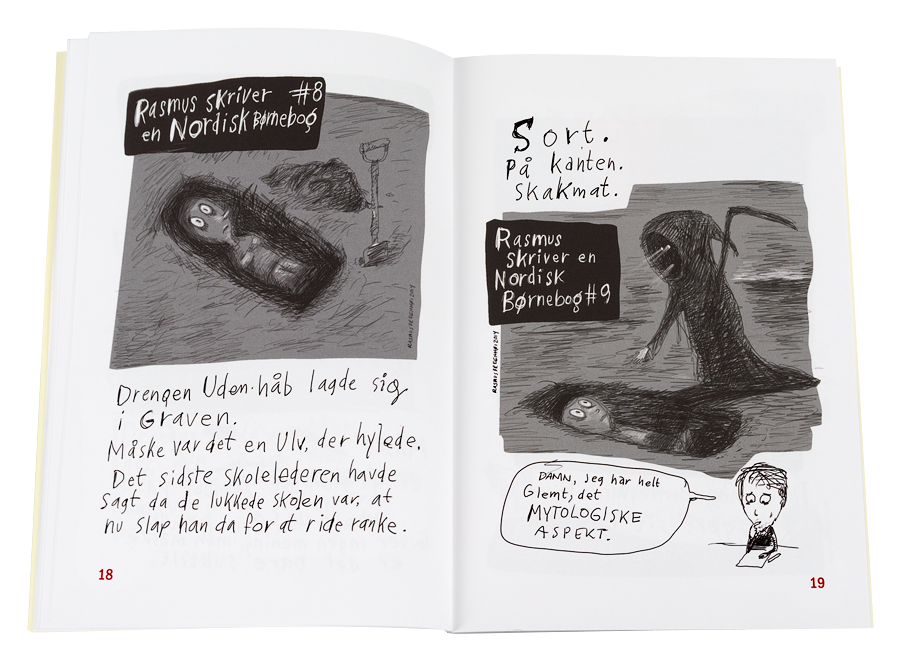 Rasmus skriver #8
en Nordisk Børnebog
RASMUS BREGNHØI 2014
Drengen Uden håb lagde sig
i Graven.
Måske var det en Ulv, der hylede.
Det sidste skolelederen havde
sagt da de lukkede skolen var, at
nu slap han da for at ride ranke.
18
Sort.
På kanten.
Skakmat.
Rasmus
skriver en
Nordisk
Børnebog #9
RASMUS BREGNHØI 2014
DAMN, jeg har helt
Glemt, det
MYTOLOGISKE
ASPEKT.
19